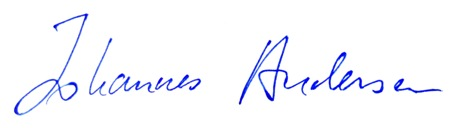 Johannes Andersen